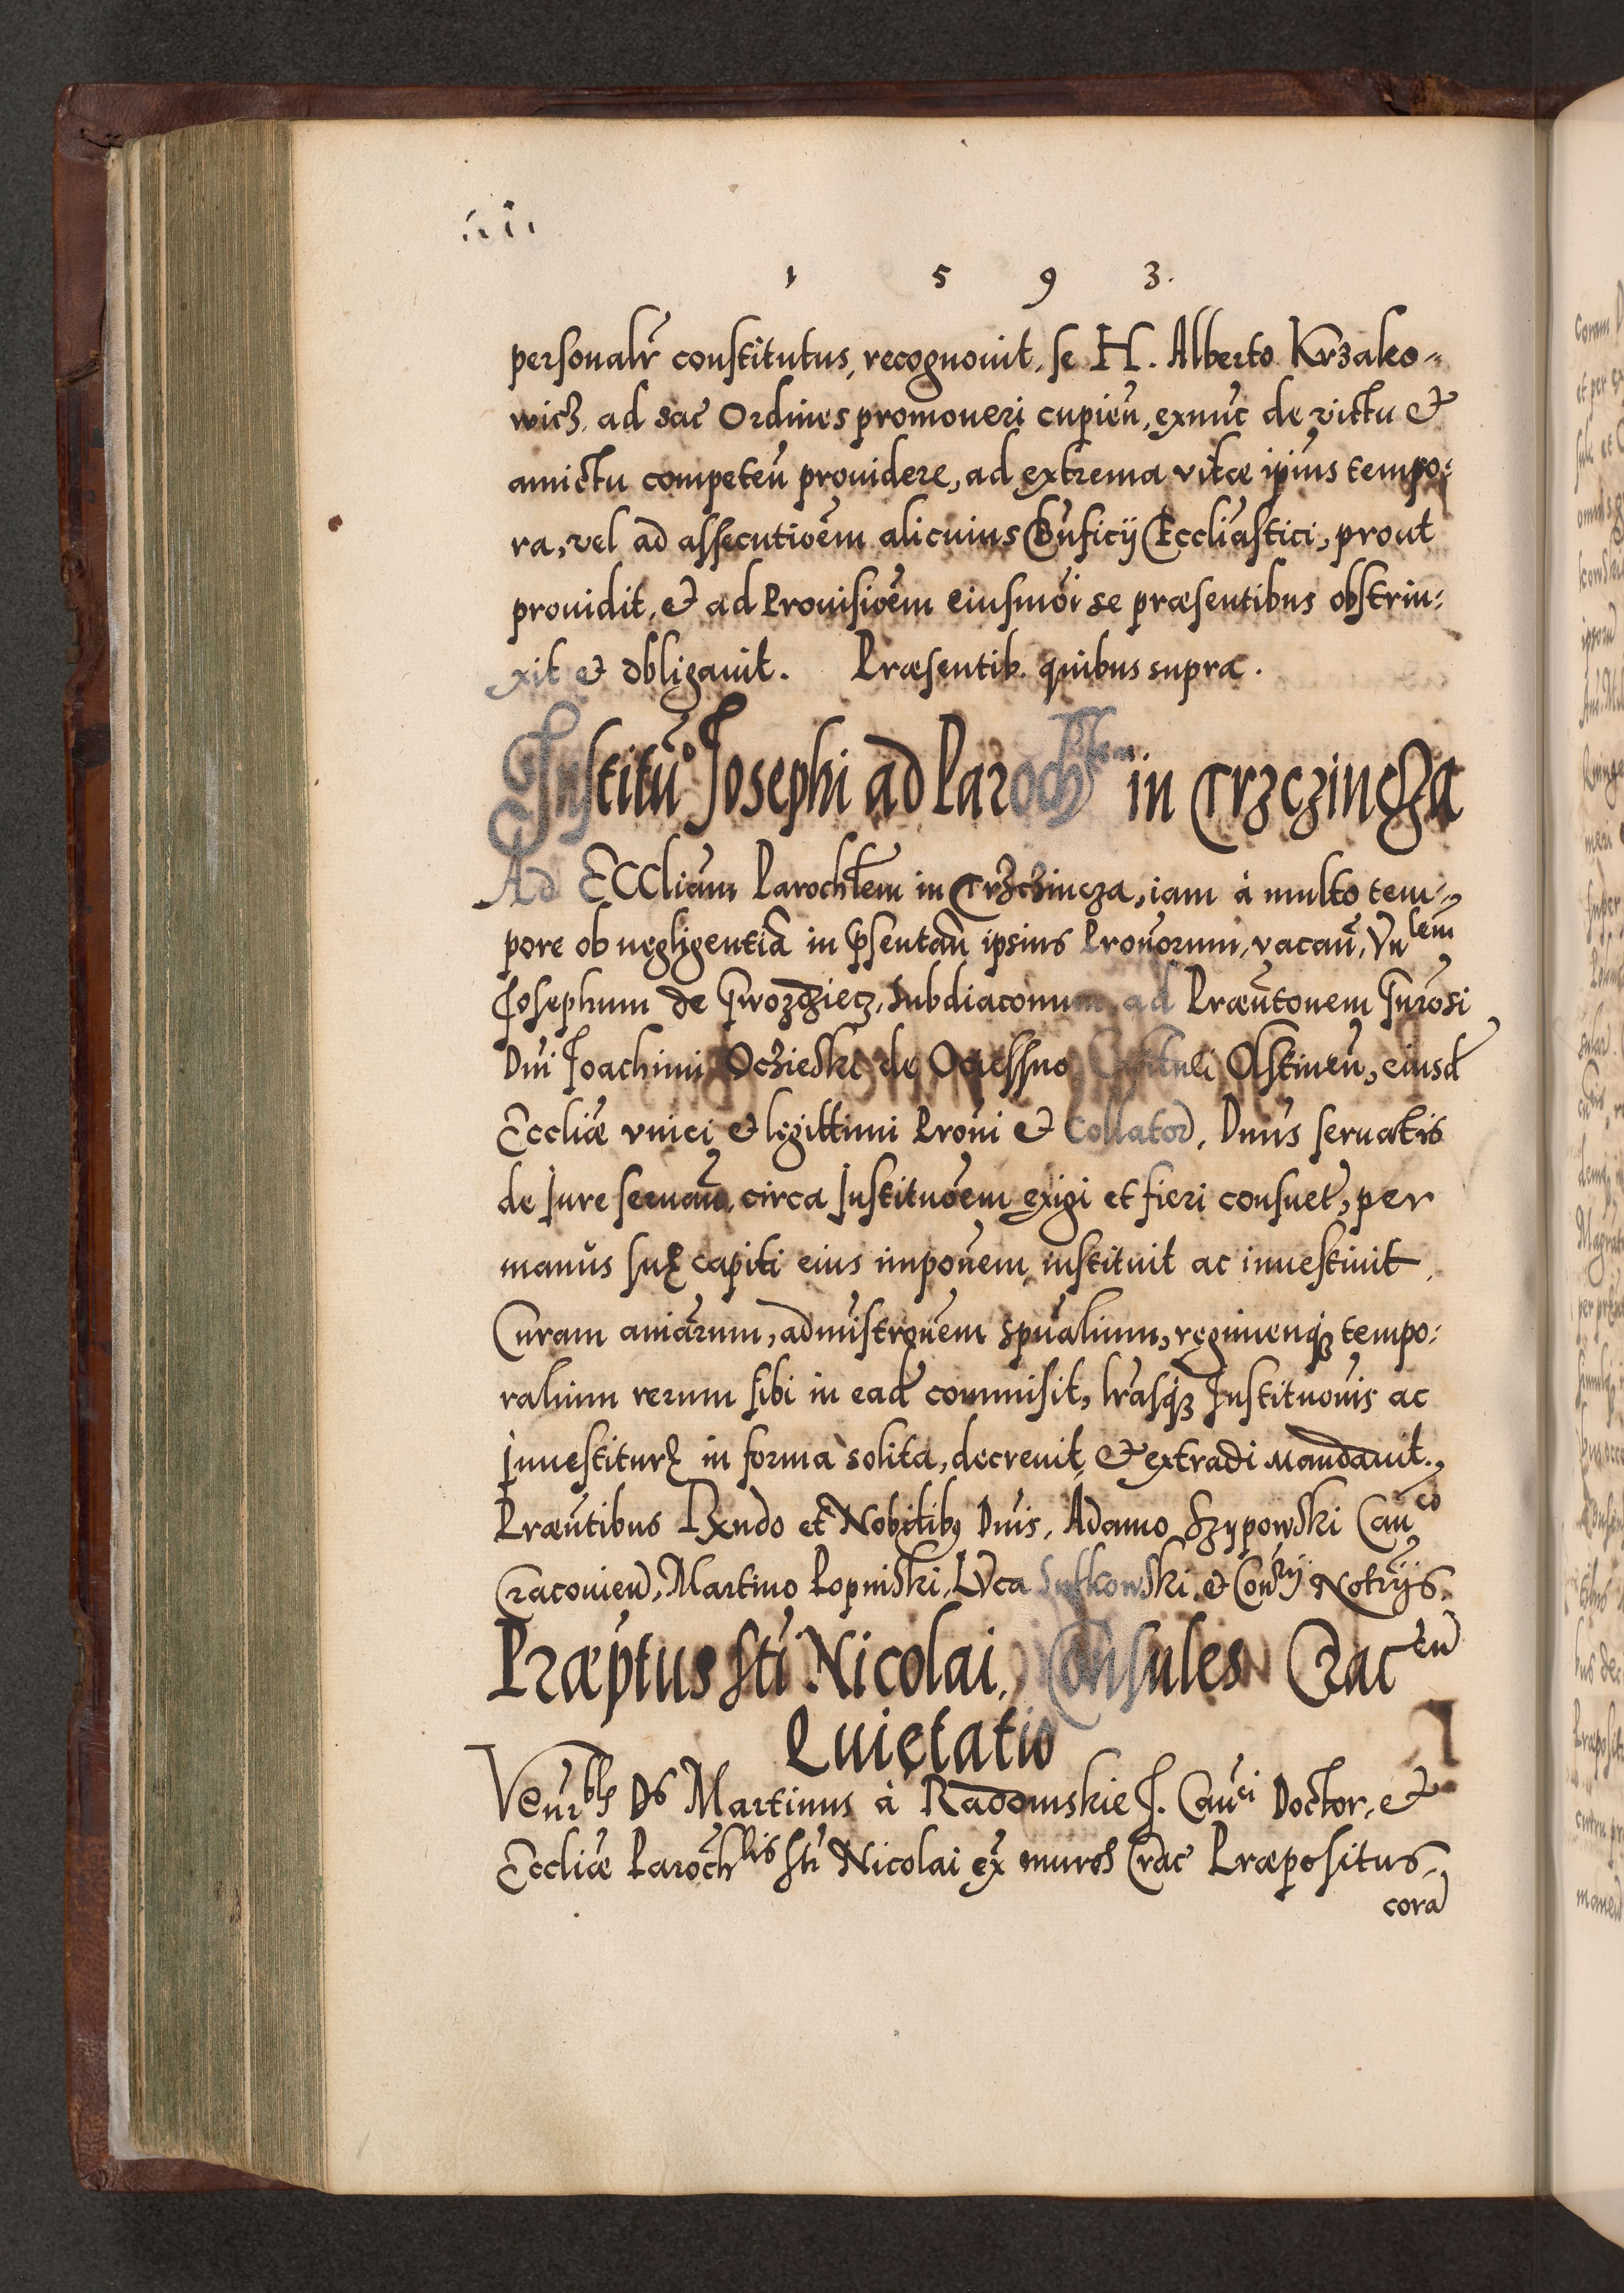 1 5 9 3.
personalr̃ constitutus, recognouit, se H. Alberto Krzako-
wicz, ad sac̃ Ordines promoueri cupieñ, exnunc de victu et
amictu competeñ prouidere, ad extrema vitæ ip̃ius tempo:
ra, vel ad assecutioẽm alicuius Bñficij Eccliãstici, prout
prouidit, et ad Prouisioẽm eiusmõi se præsentibus obstrin:
xit et obligauit. Præsentib. quibus supra.
Institũo Josephi ad Paroch̃lem in Trzczincza
Ad ECCliãm Paroch̃lem in Trzczincza, iam à multo tem-
pore ob negligentiã in p̃sentañ ipsius Pronõrum, vacañ, Vñlem
Josephum de Gwozdziecz, Subdiaconum, ad Præñtonem Gnrõsi
Dñi Joachimi Oczieski de Ocziessno Osŧineñ, eiusd̃
Eccliæ vnici et legittimi Prõni et Collator̃, Dñus seruatis
de Jure seruañ, circa Instituõem exigi et fieri consuet̃, per
manus suę capiti eius impoñem instituit ac inuestiuit
Curam aniãrum, admĩstroñem spũalium, regimenq; tempo:
ralium rerum sibi in ead̃ commisit, lr̃asq; Instituõnis ac
Inuestiturę in forma solita, decreuit, et extradi mandauit.,
Præñtibus Rx̃ndo et Nobilib; Dñis, Adamo Szypowski Cañco
Cracouieñ, Martino Popinski, Luca Sutkowski et Consrij Notrijs.
Præptus sti Nicolai, Consules Cracen̄
Quietatio
Venrbls Ds Martinus à Radomskie J. Cañci Doctor, et
Eccliæ Paroch̃lis sti Nicolai ex̃ muros Crac̃ Præpositus,
corã